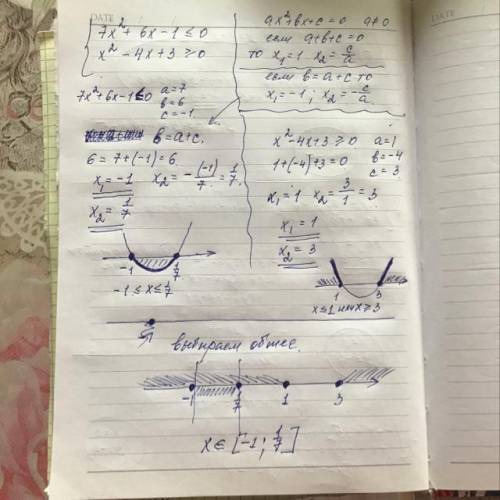 DATE
7x² + 6x - 1 ≤ 0
x² - 4x + 3 ≥ 0
ax² + bx + c = 0 a ≠ 0
если a + b + c = 0
то x₁ = 1 x₂ = c/a
если b = a + c то
x₁ = -1 ; x₂ = -c/a
7x² + 6x - 1 ≤ 0
a = 7
b = 6
c = -1
b = a + c.
6 = 7 + (-1) = 6
x₁ = -1 x₂ = -(-1)/7 = 1/7.
x₂ = 1/7
-1 1/7
-1 ≤ x ≤ 1/7
x² - 4x + 3 ≥ 0
a = 1
b = -4
c = 3
1 + (-4) + 3 = 0
x₁ = 1 x₂ = 3/1 = 3
x₁ = 1
x₂ = 3
1 3
x ≤ 1 или x ≥ 3
выбираем общее.
-1 1/7 1 3
x ∈ [-1 ; 1/7]
DATE